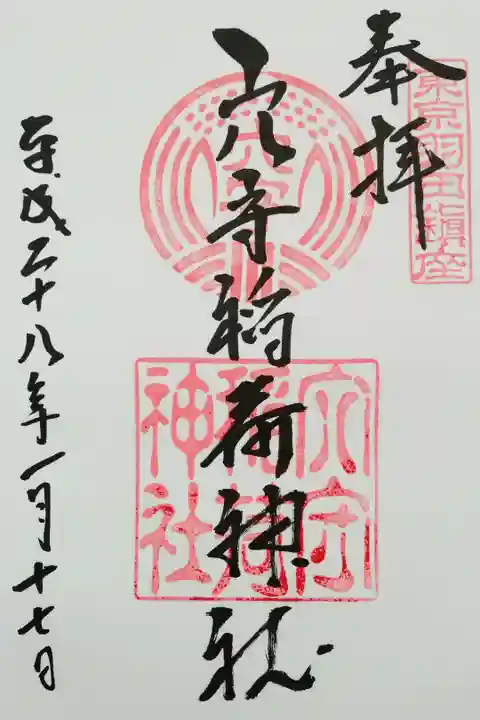 東京羽田鎮座
奉拝
穴守
穴守稲荷神社
穴守稲荷神社
平成二十八年一月十七日